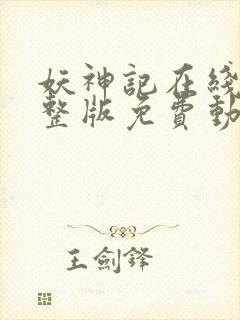 妖神記在綫
整版免費動
王劍鋒